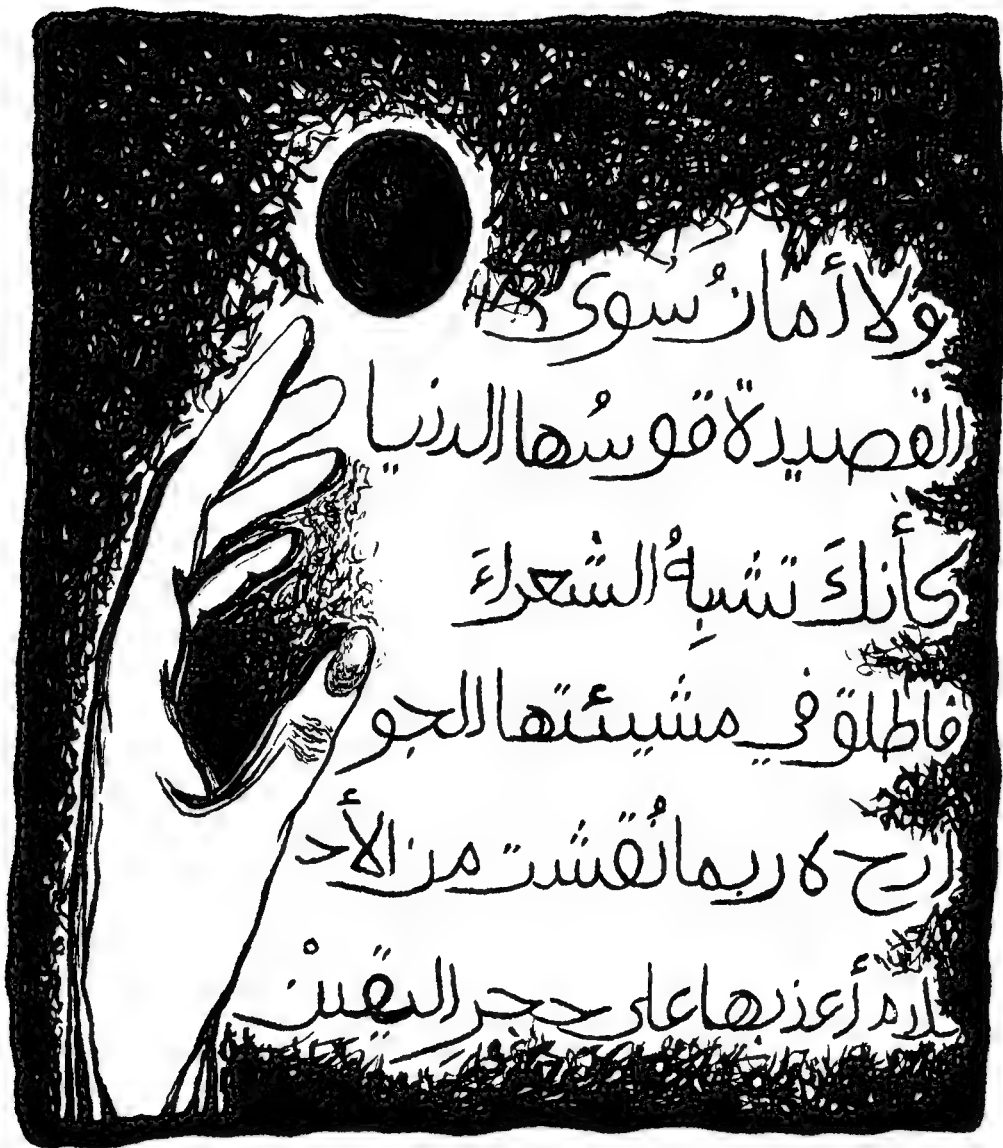 ولا أمانُ سُوى
القصيدة قوسُها الدنيا
كأنكَ تشبِهُ الشعراءَ
فاطلق في مشيئتها الجو
ارح ، ربما نُقشت من الأحـ
ـلام أعذبها على حجرِ اليقينْ